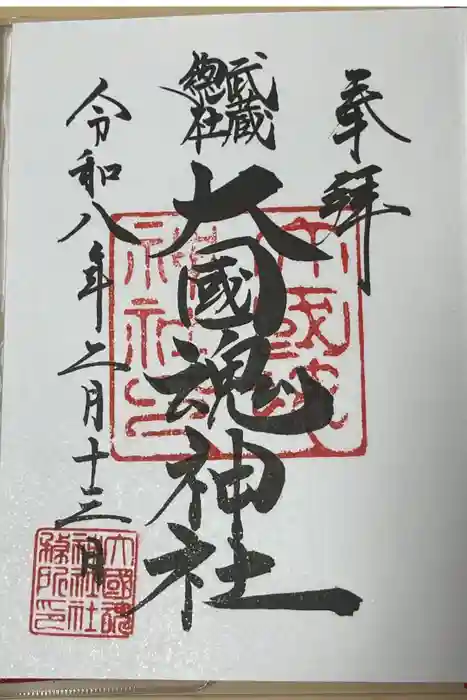 奉拝
武蔵
總社
大國魂神社
令和八年二月十三日
大國魂
神社社
務所印